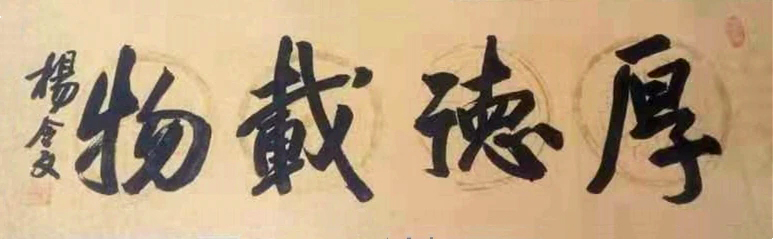 厚德載物
楊令文